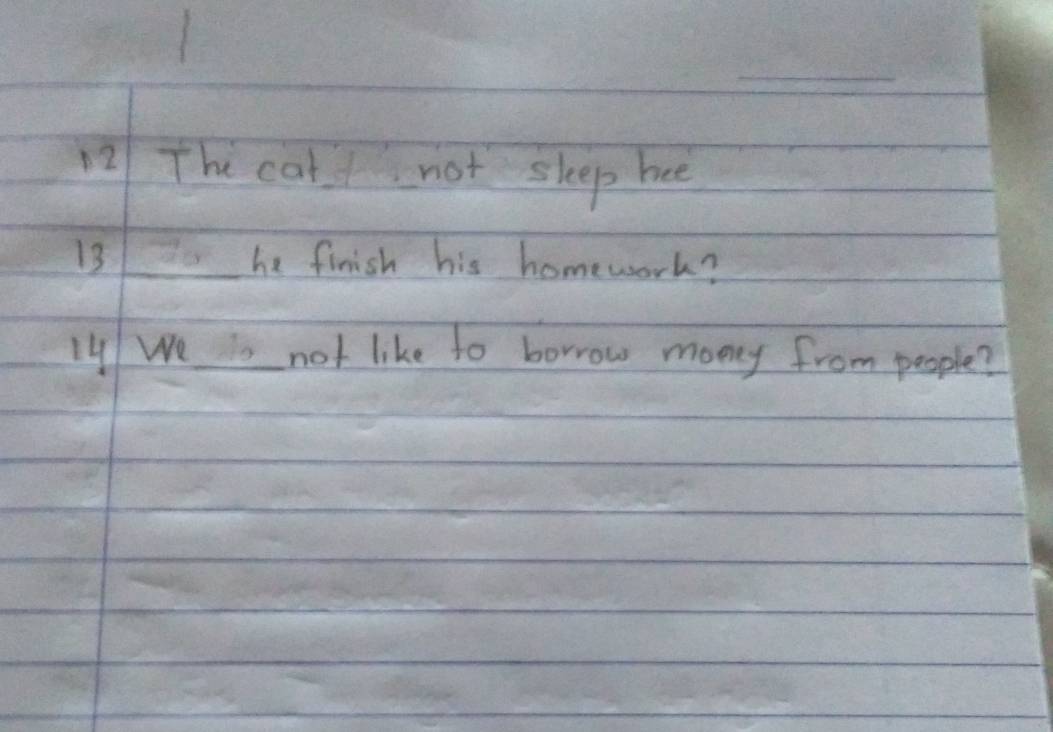 12 The cat not sleep hee
13 ____ he finish his homework?
14 We ____ not like to borrow money from people?